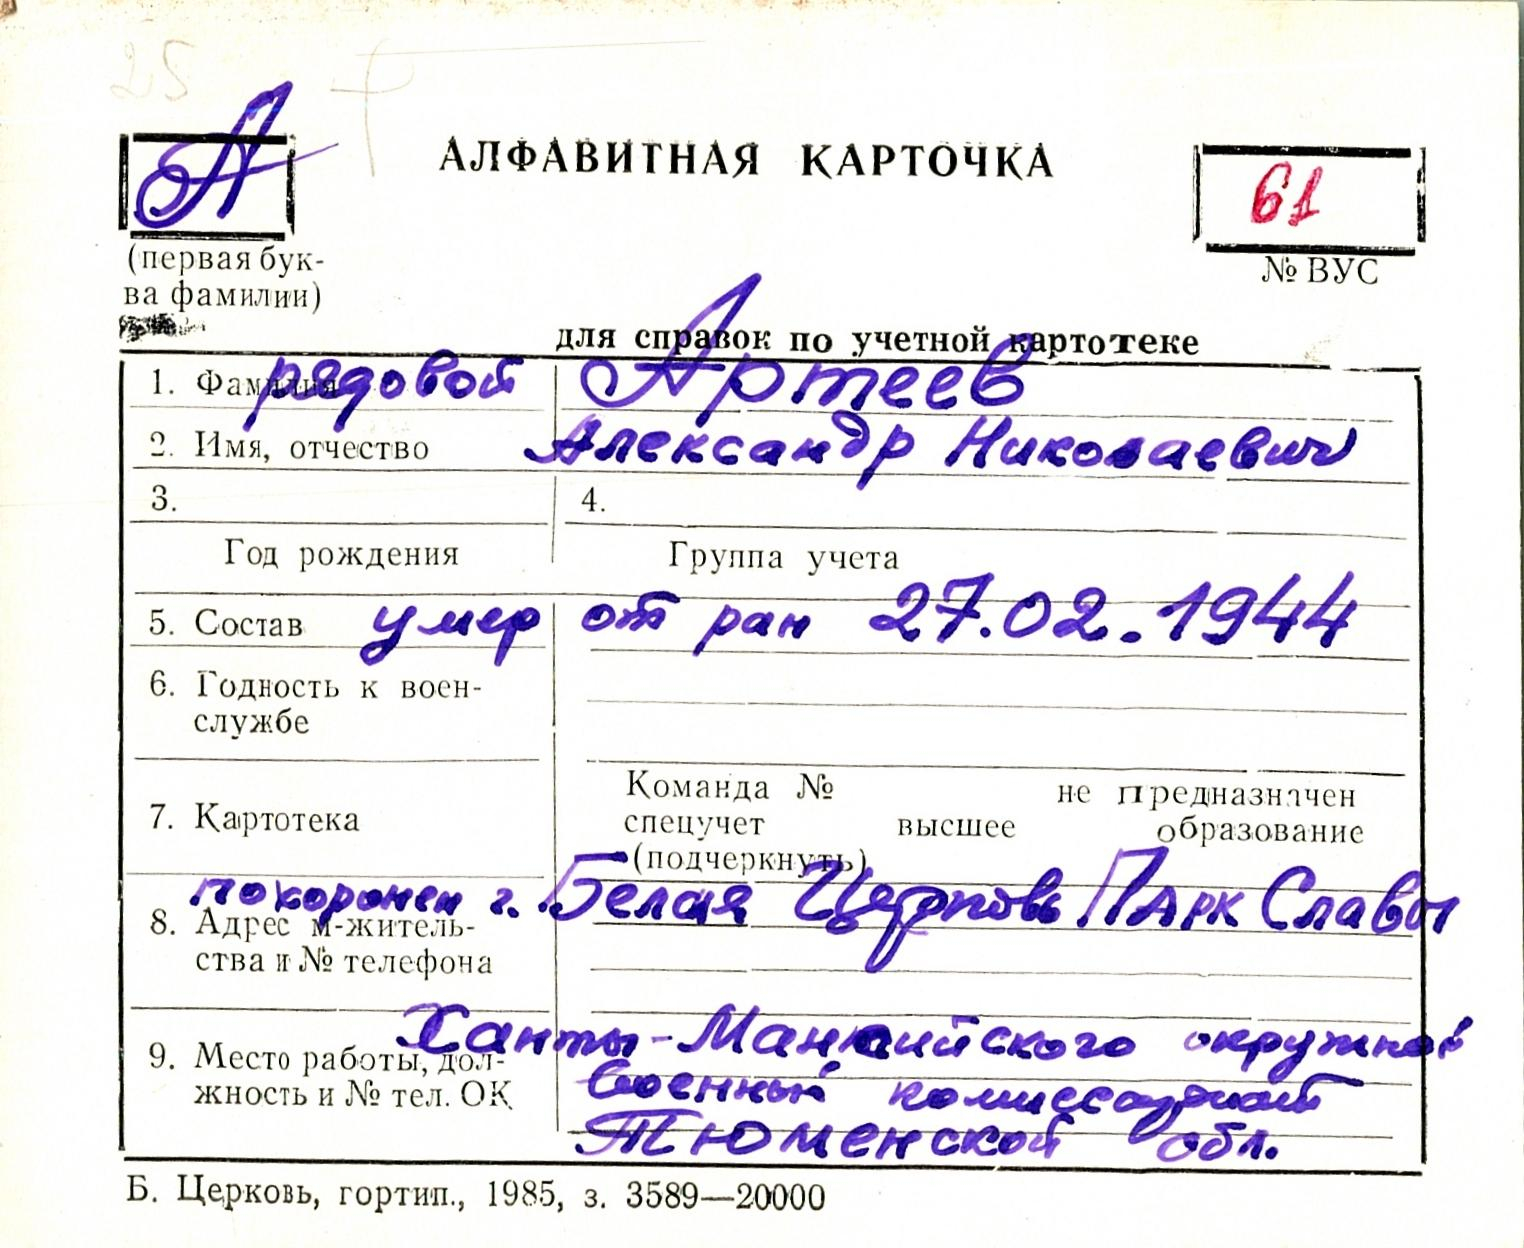 25
А
АЛФАВИТНАЯ КАРТОЧКА
61
(первая бук-
ва фамилии)
№ ВУС
для справок по учетной картотеке
1. Фамилия рядовой Артеев
2. Имя, отчество Александр Николаевич
3. 4.
Год рождения Группа учета
5. Состав умер от ран 27.02.1944
6. Годность к воен-
службе
Команда № не предназначен
7. Картотека спецучет высшее образование
(подчеркнуть)
похоронен г. Белая Церковь Парк Славы
8. Адрес м-житель-
ства и № телефона
Ханты-Мансийского окружной
9. Место работы, дол-
жность и № тел. ОК военный комиссариат
Тюменской обл.
Б. Церковь, гортип., 1985, з. 3589—20000